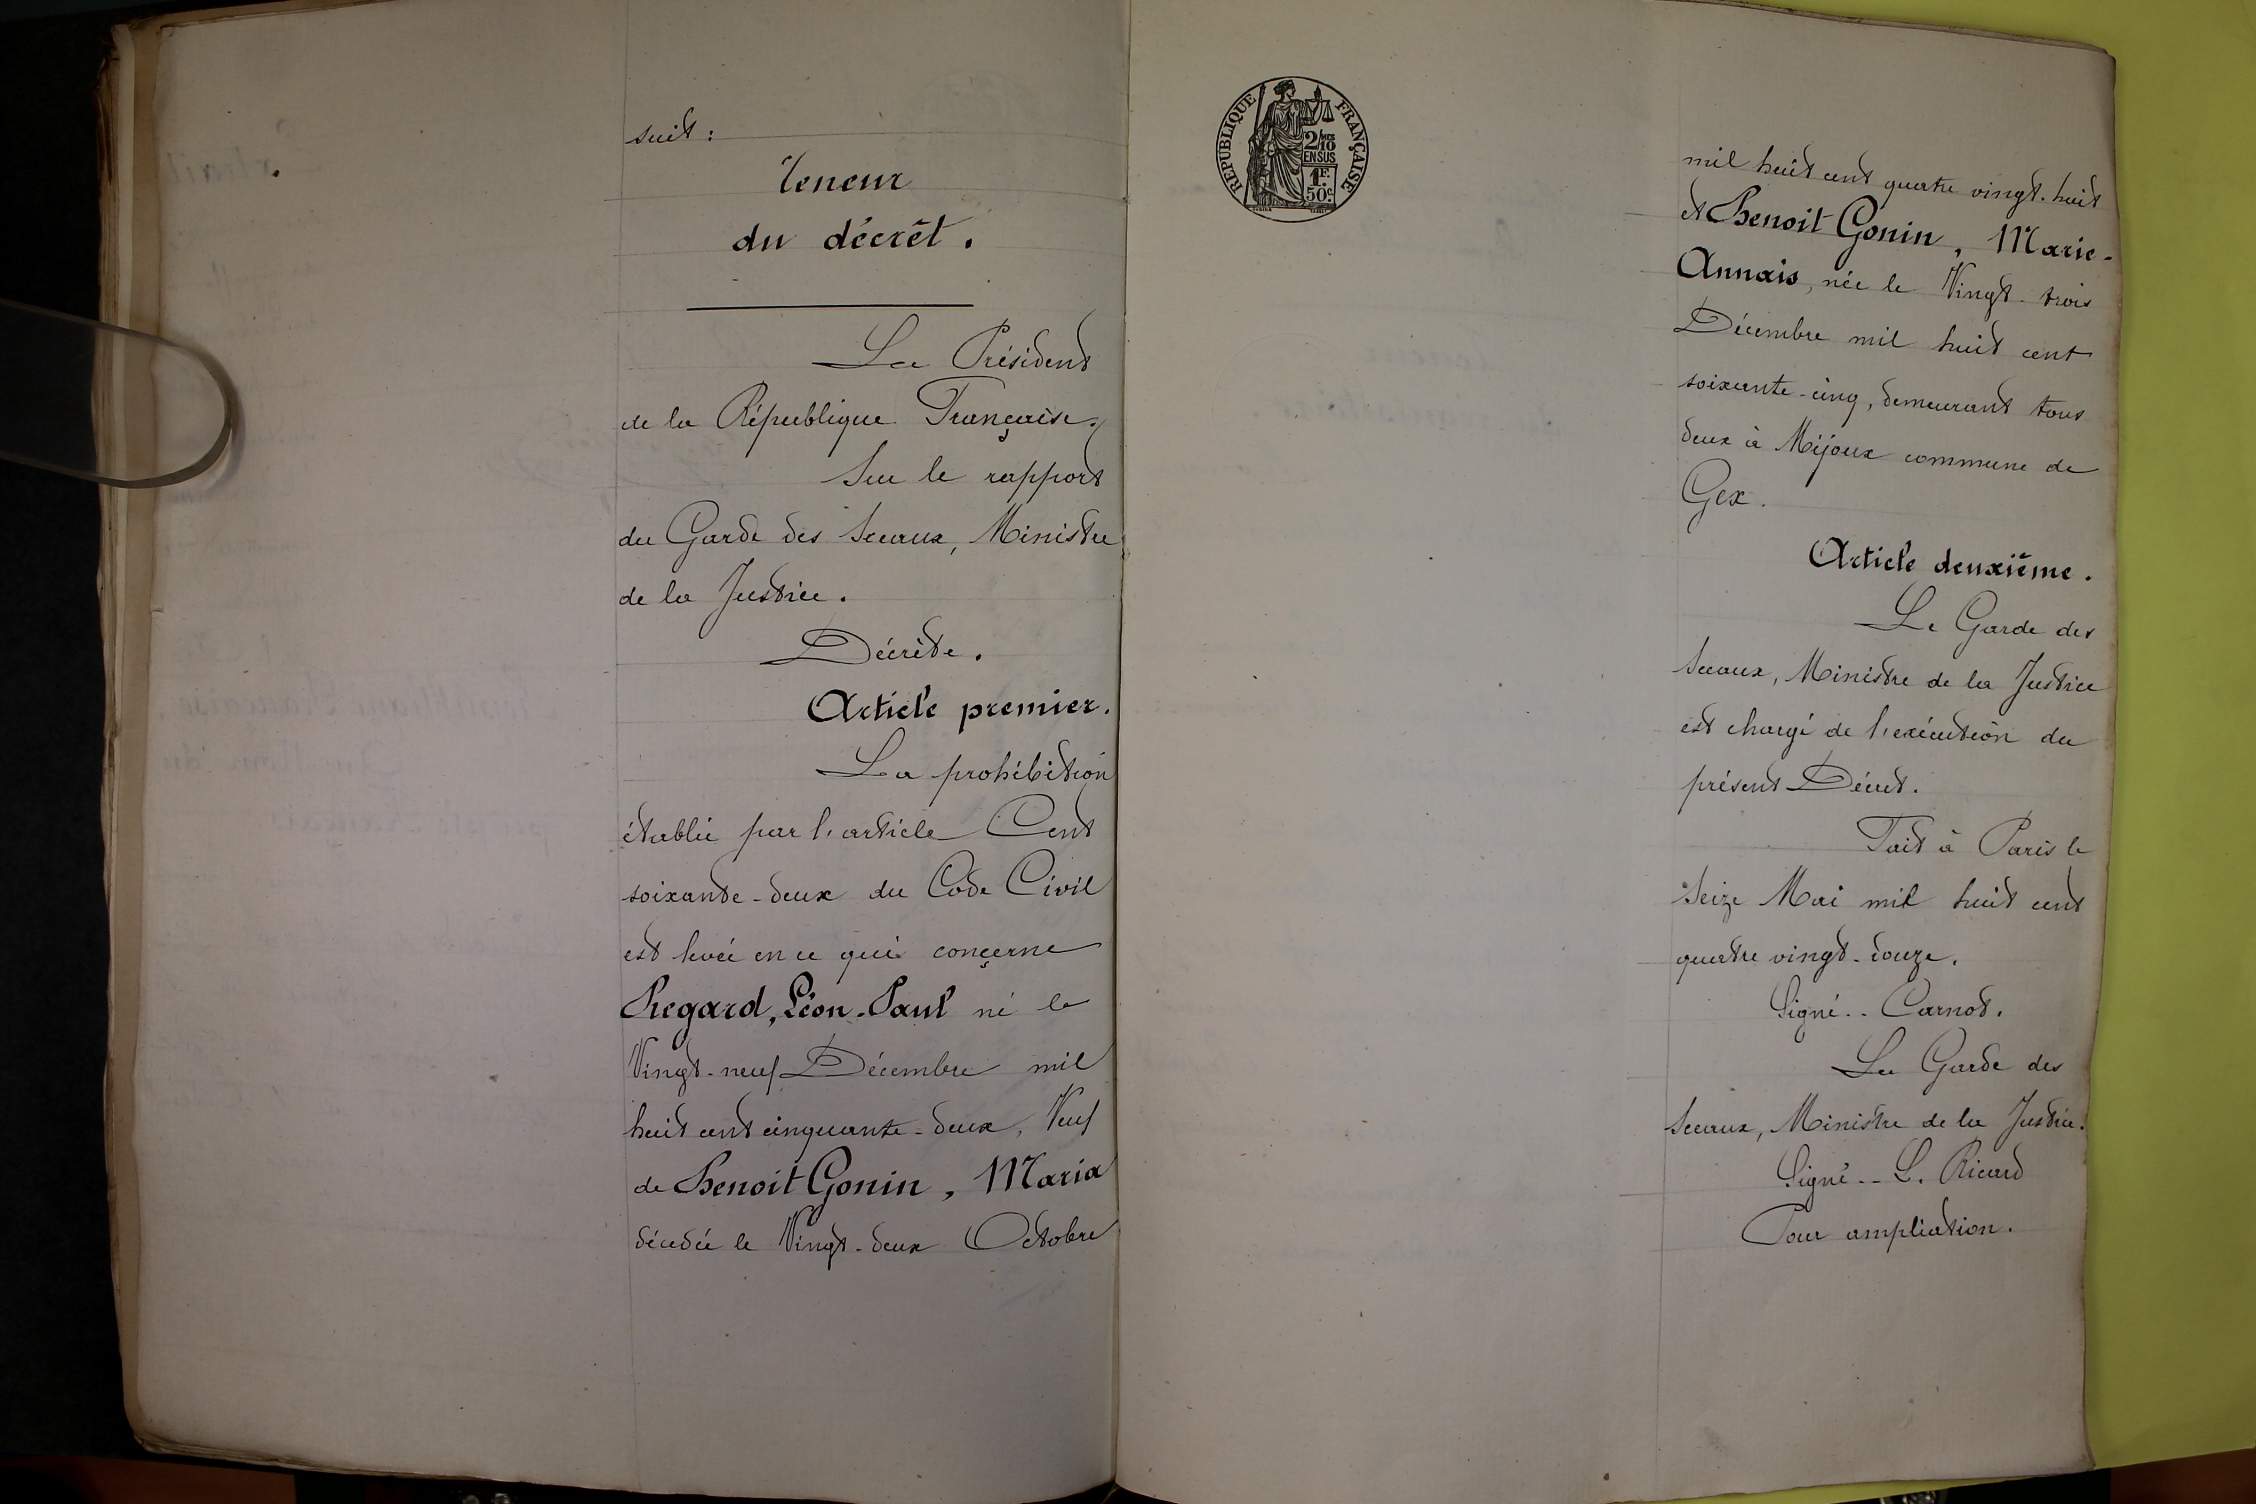 suit :
Teneur
du décrêt.
Le Président
de la République Française.
Sur le rapport
du Garde des Sceaux, Ministre
de la Justice.
Décrète.
Article premier.
La prohibition
établie par l'article Cent
soixante-deux du Code Civil
est levée en ce qui conçerne
Regard, Léon-Paul né le
Vingt-neuf Décembre mil
huit cent cinquante-deux, Veuf
de Benoit Gonin, Maria
décédée le Vingt-deux Octobre
RÉPUBLIQUE FRANÇAISE
2/10 MES
EN SUS
1F.
50c.
mil huit cent quatre vingt-huit
et Benoit Gonin, Marie-
Annais, née le Vingt-trois
Décembre mil huit cent
soixante-cinq, demeurant tous
deux à Mijoux commune de
Gex.
Article deuxième.
Le Garde des
Sceaux, Ministre de la Justice
est chargé de l'exécution du
présent Décret.
Fait à Paris le
Seize Mai mil huit cent
quatre vingt-douze.
Signé.. Carnot.
Le Garde des
Sceaux, Ministre de la Justice.
Signé.. L. Ricard
Pour ampliation.